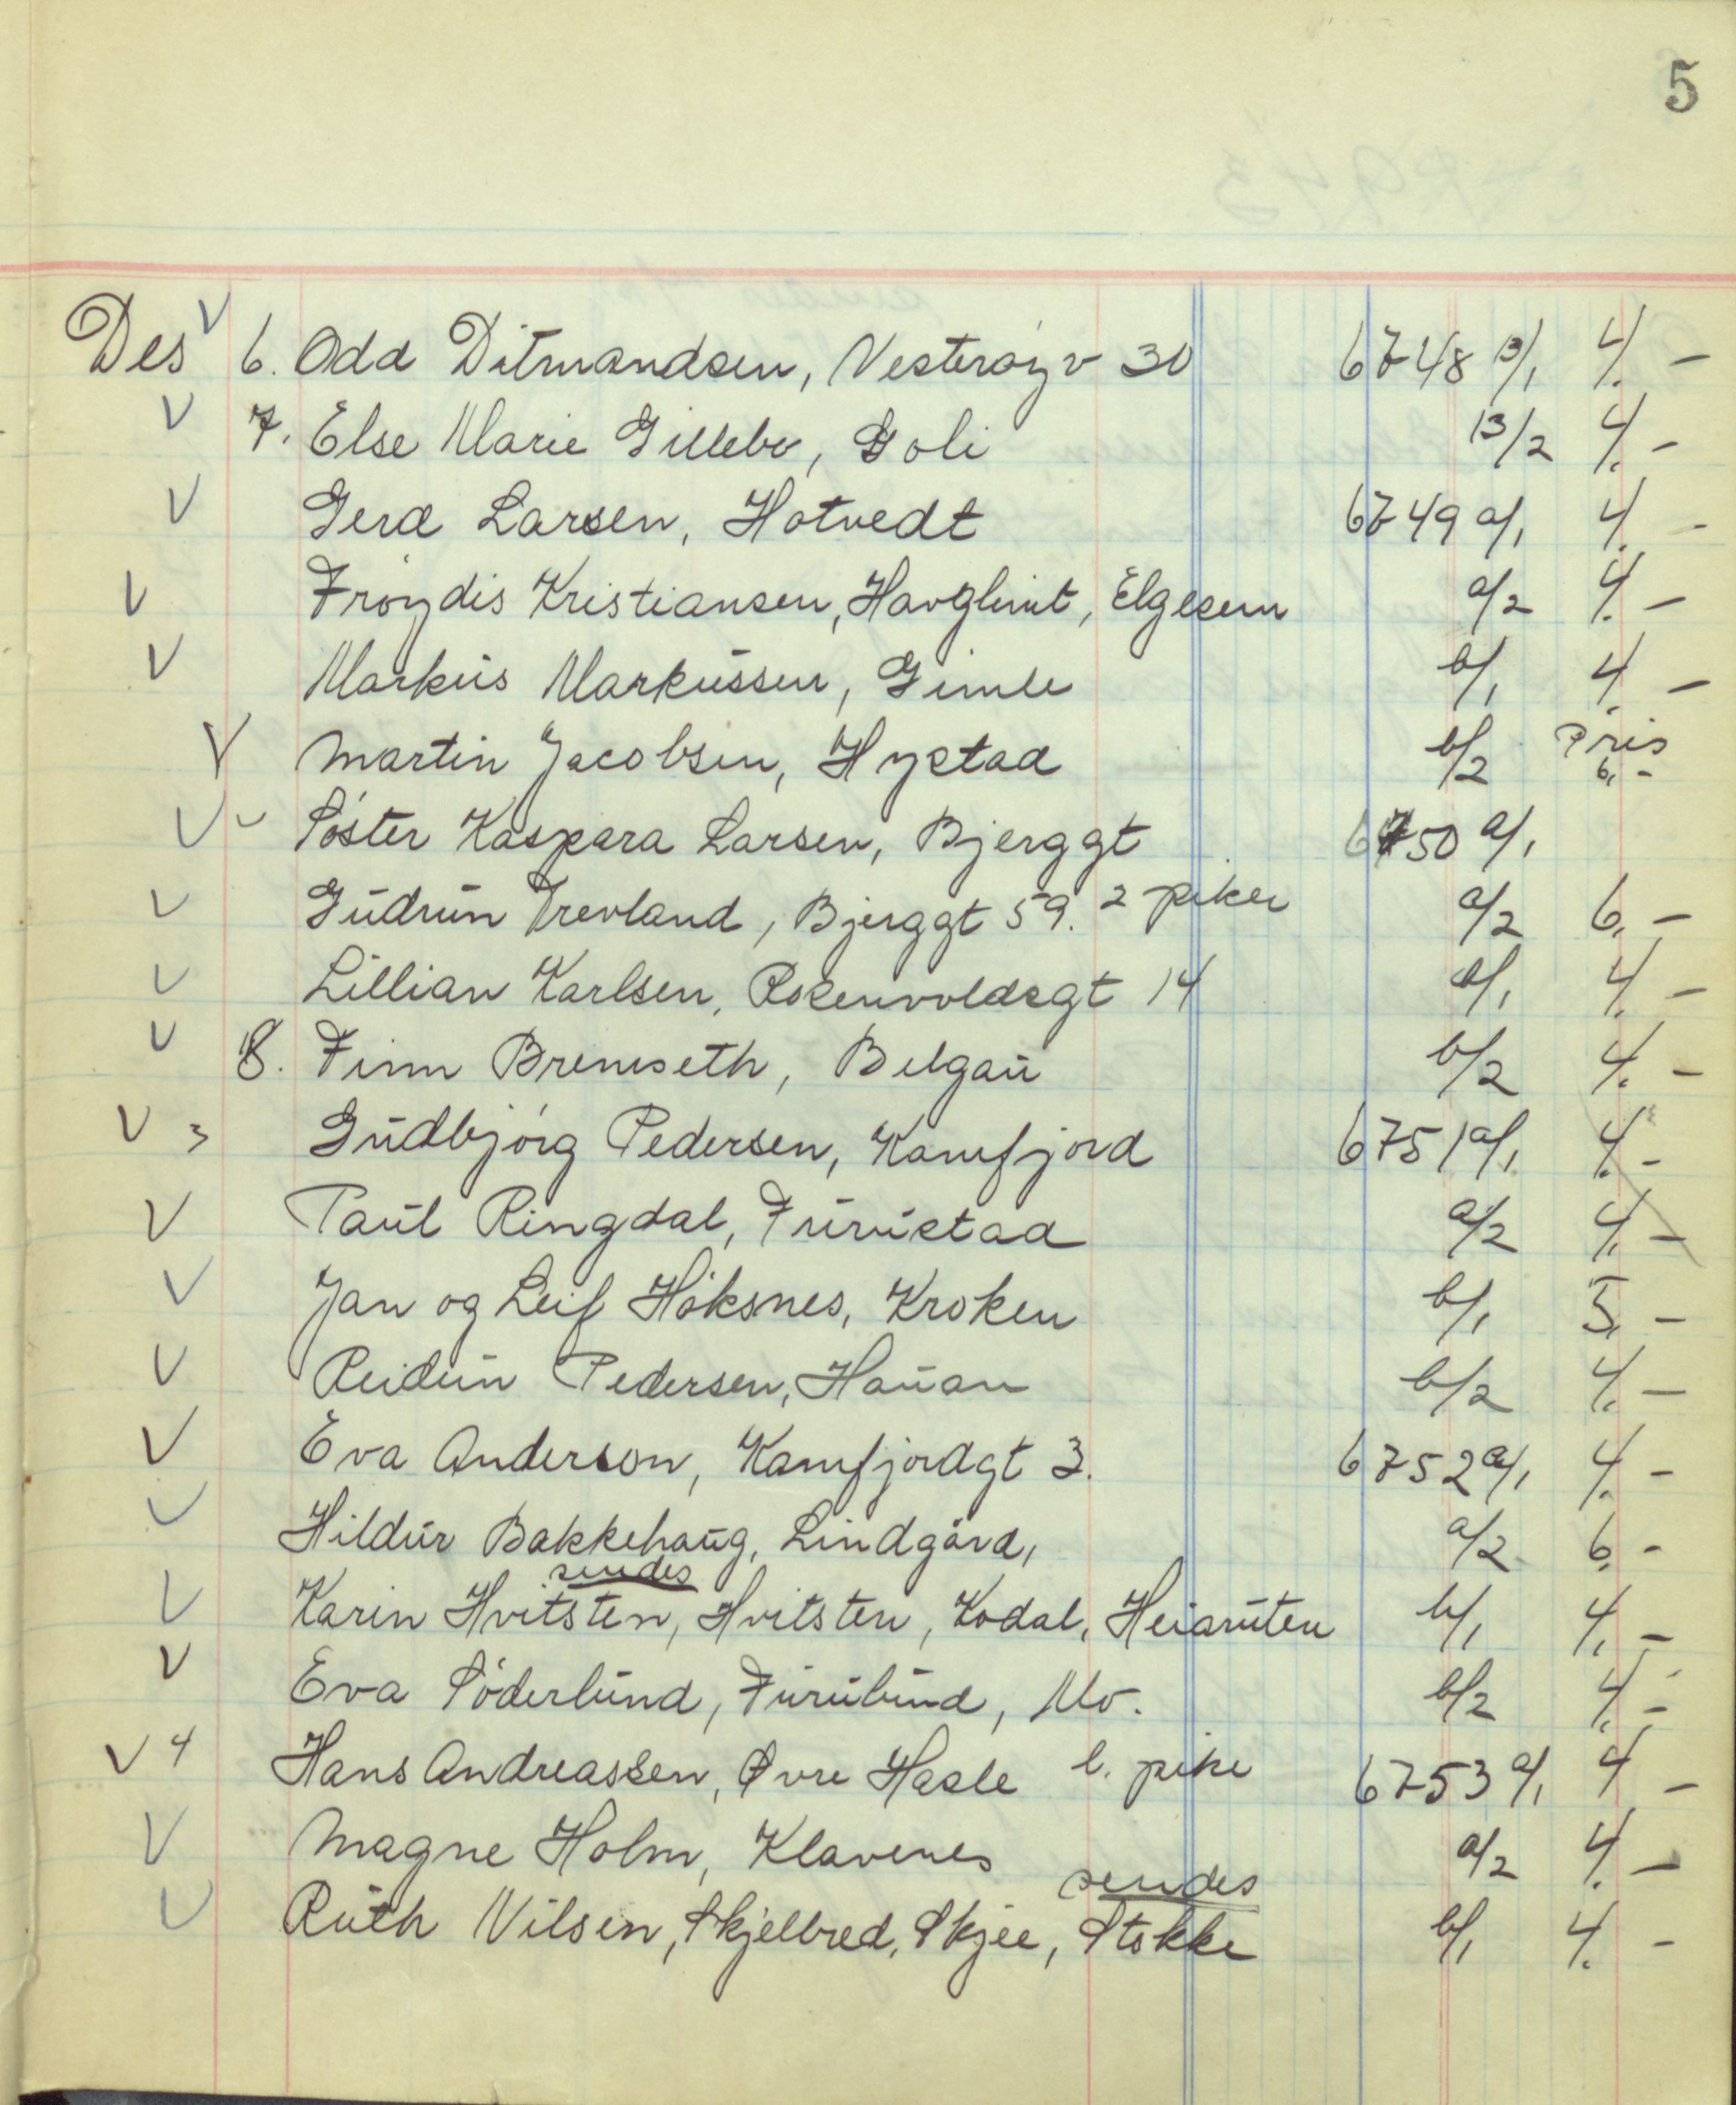 5
Des V 6. Odd Ditmandsen, Vesterøyv 30 6748 B/1 4.-
V 7. Else Marie Gillebo, Goli B/2 4.-
V Gerd Larsen, Hotvedt 6749 a/1 4.-
V Frøydis Kristiansen, Havglimt, Elgesem a/2 4.-
V Markus Markussen, Gimle b/1 4.-
V Martin Jacobsen, Hystad b/2 Pris 6.-
V Søster Kaspara Larsen, Bjerggt 6750 a/1
V Gudrun Trevland, Bjerggt 59. 2 piker a/2 6.-
V Lillian Karlsen, Rosenvoldsgt 14 b/1 4.-
V 8. Finn Bremseth, Belgau b/2 4.-
V 3 Gudbjørg Pedersen, Kamfjord 6751 a/1 4.-
V Paul Ringdal, Furustad a/2 4.-
V Jan og Leif Høksnes, Kroken b/1 5.-
V Reidun Pedersen, Hauan b/2 4.-
V Eva Anderson, Kamfjordgt 3. 6752 a/1 4.-
V Hildur Bakkehaug, Lindgård, a/2 6.-
sendes
V Karin Hvitsten, Hvitsten, Kodal, Heiaruten b/1 4.-
V Eva Søderlund, Furulund, Mo. b/2 4.-
V 4 Hans Andreassen, Øvre Hasle l. pike 6753 a/1 4.-
V Magne Holm, Klavenes a/2 4.-
sendes
V Ruth Nilsen, Skjelbred, Skjee, Stokke b/1 4.-